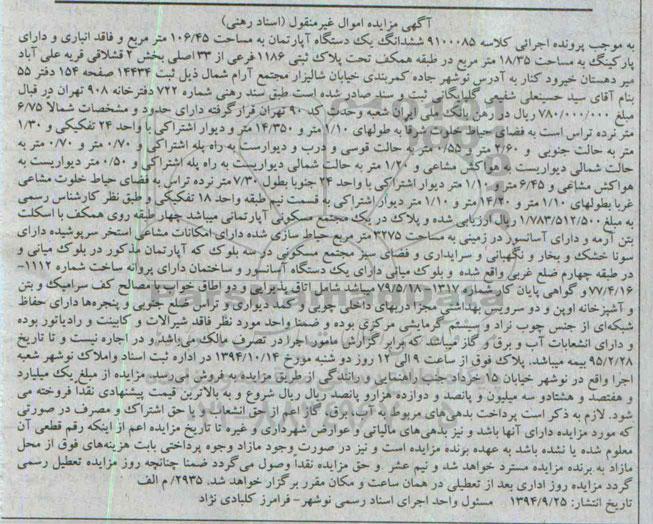 آگهی مزایده اموال غیرمنقول (اسناد رهنی)
به موجب پرونده اجرائی کلاسه ۹۱۰۰۰۸۵ ششدانگ یک دستگاه آپارتمان به مساحت ۱۰۶/۴۵ متر مربع و فاقد انباری و دارای
پارکینگ به مساحت ۱۸/۳۵ متر مربع در طبقه همکف تحت پلاک ثبتی ۱۱۸۶ فرعی از ۳۳ اصلی بخش ۲ قشلاقی قریه علی آباد
میر دهستان خیرود کنار به آدرس نوشهر جاده کمربندی خیابان شالیزار مجتمع آرام شمال ذیل ثبت ۱۴۴۳۴ صفحه ۱۵۴ دفتر ۵۵
بنام آقای سید حسینعلی شفیعی گلپایگانی ثبت و سند صادر شده است طبق سند رهنی شماره ۷۲۲ دفترخانه ۹۰۸ تهران در قبال
مبلغ ۷۸۰/۰۰۰/۰۰۰ ریال در رهن بانک ملی ایران شعبه وحدت کد ۹۰ تهران قرار گرفته دارای حدود و مشخصات شمالاً ۶/۷۵
متر نرده تراس است به فضای حیاط خلوت شرقاً به طولهای ۱/۱۰ متر و ۱۴/۳۵۰ متر و دیوار اشتراکی با واحد ۲۴ تفکیکی و ۱/۳۰
متر به حالت جنوبی و ۲/۶۰ متر و ۰/۵۵ متر به حالت قوسی و درب و دیوارست به راه پله اشتراکی و ۰/۷۰ متر و ۰/۷۰ متر به
حالت شمالی دیواریست به هواکش مشاعی و ۱/۲۰ متر به حالت شمالی دیواریست به راه پله اشتراکی و ۰/۵۰ متر دیواریست به
هواکش مشاعی و ۶/۴۵ متر و ۱/۱۰ متر دیوار اشتراکی با واحد ۲۴ جنوبا بطول ۷/۳۰ متر نرده تراس به فضای حیاط خلوت مشاعی
غربا بطولهای ۱/۱۰ متر و ۱۴/۲۰ متر و ۱/۱۰ متر دیوار اشتراکی به قسمت نیم طبقه واحد ۱۸ تفکیکی و طبق نظر کارشناس رسمی
به مبلغ ۱/۷۸۳/۵۱۲/۵۰۰ ریال ارزیابی شده و پلاک در یک مجتمع مسکونی آپارتمانی میباشد چهار طبقه روی همکف با اسکلت
بتن آرمه و دارای آسانسور در زمینی به مساحت ۳۲۷۵ متر مربع حیاط سازی شده دارای امکانات مشاعی استخر سرپوشیده دارای
سونا خشک و بخار و نگهبانی و سرایداری و فضای سبز مجتمع مسکونی در سه بلوک که آپارتمان مذکور در بلوک میانی و
در طبقه چهارم ضلع غربی واقع شده و بلوک میانی دارای یک دستگاه آسانسور و ساختمان دارای پروانه ساخت شماره ۱۱۱۲-
۷۷/۴/۱۶ و گواهی پایان کار شماره ۱۳۱۷-۷۹/۵/۱۸ میباشد شامل اتاق پذیرایی و دو اطاق خواب با مصالح کف سرامیک و بتن
و آشپزخانه اوپن و دو سرویس بهداشتی مجزا دربهای داخلی چوبی و کمد دیواری و تراس ضلع جنوبی و پنجره‌ها دارای حفاظ
شبکه‌ای از جنس چوب نراد و سیستم گرمایشی مرکزی بوده و ضمنا واحد مورد نظر فاقد شیرالات و کابینت و رادیاتور بوده
و دارای انشعابات آب و برق و گاز میباشد که برابر گزارش مامور اجرا در تصرف مالک می‌باشد و در اجاره نیست و تا تاریخ
۹۵/۲/۲۸ بیمه میباشد. پلاک فوق از ساعت ۹ الی ۱۲ روز دو شنبه مورخ ۱۳۹۴/۱۰/۱۴ در اداره ثبت اسناد واملاک نوشهر شعبه
اجرا واقع در نوشهر خیابان ۱۵ خرداد جنب راهنمایی و رانندگی از طریق مزایده به فروش می‌رسد. مزایده از مبلغ یک میلیارد
و هفتصد و هشتادو سه میلیون و پانصد و دوازده هزارو پانصد ریال ریال شروع و به بالاترین قیمت پیشنهادی نقداً فروخته می
شود. لازم به ذکر است پرداخت بدهی‌های مربوط به آب، برق، گاز اعم از حق انشعاب و یا حق اشتراک و مصرف در صورتی
که مورد مزایده دارای آنها باشد و نیز بدهی های مالیاتی و عوارض شهرداری و غیره تا تاریخ مزایده اعم از اینکه رقم قطعی آن
معلوم شده یا نشده باشد به عهده برنده مزایده است و نیز در صورت وجود مازاد وجوه پرداختی بابت هزینه‌های فوق از محل
مازاد به برنده مزایده مسترد خواهد شد و نیم عشر و حق مزایده نقدا وصول می‌گردد ضمنا چنانچه روز مزایده تعطیل رسمی
گردد مزایده روز اداری بعد از تعطیلی در همان ساعت و مکان مقرر برگزار خواهد شد. ۲۹۳۵/ م الف
تاریخ انتشار: ۱۳۹۴/۹/۲۵ مسئول واحد اجرای اسناد رسمی نوشهر- فرامرز کلبادی نژاد